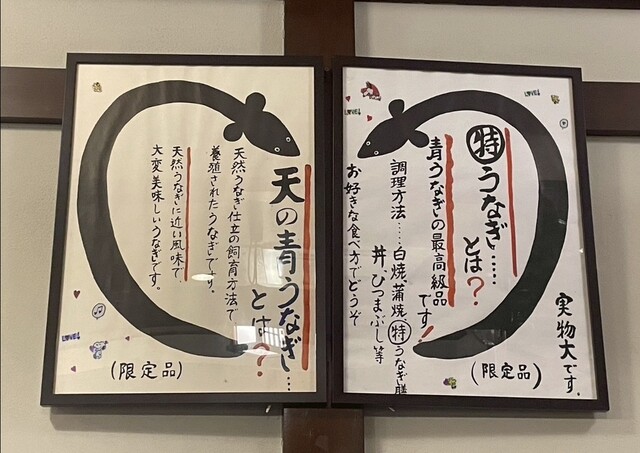 特うなぎ……
とは？
青うなぎの最高級品
です！
調理方法……白焼、蒲焼、特うなぎ膳
丼、ひつまぶし等
お好きな食べ方でどうぞ
実物大です。
(限定品)
天の青うなぎ…
とは？
天然うなぎ仕立の飼育方法で、
養殖されたうなぎです。
天然うなぎに近い風味で、
大変美味しいうなぎです。
(限定品)
LOVE!
LOVE!
LOVE!